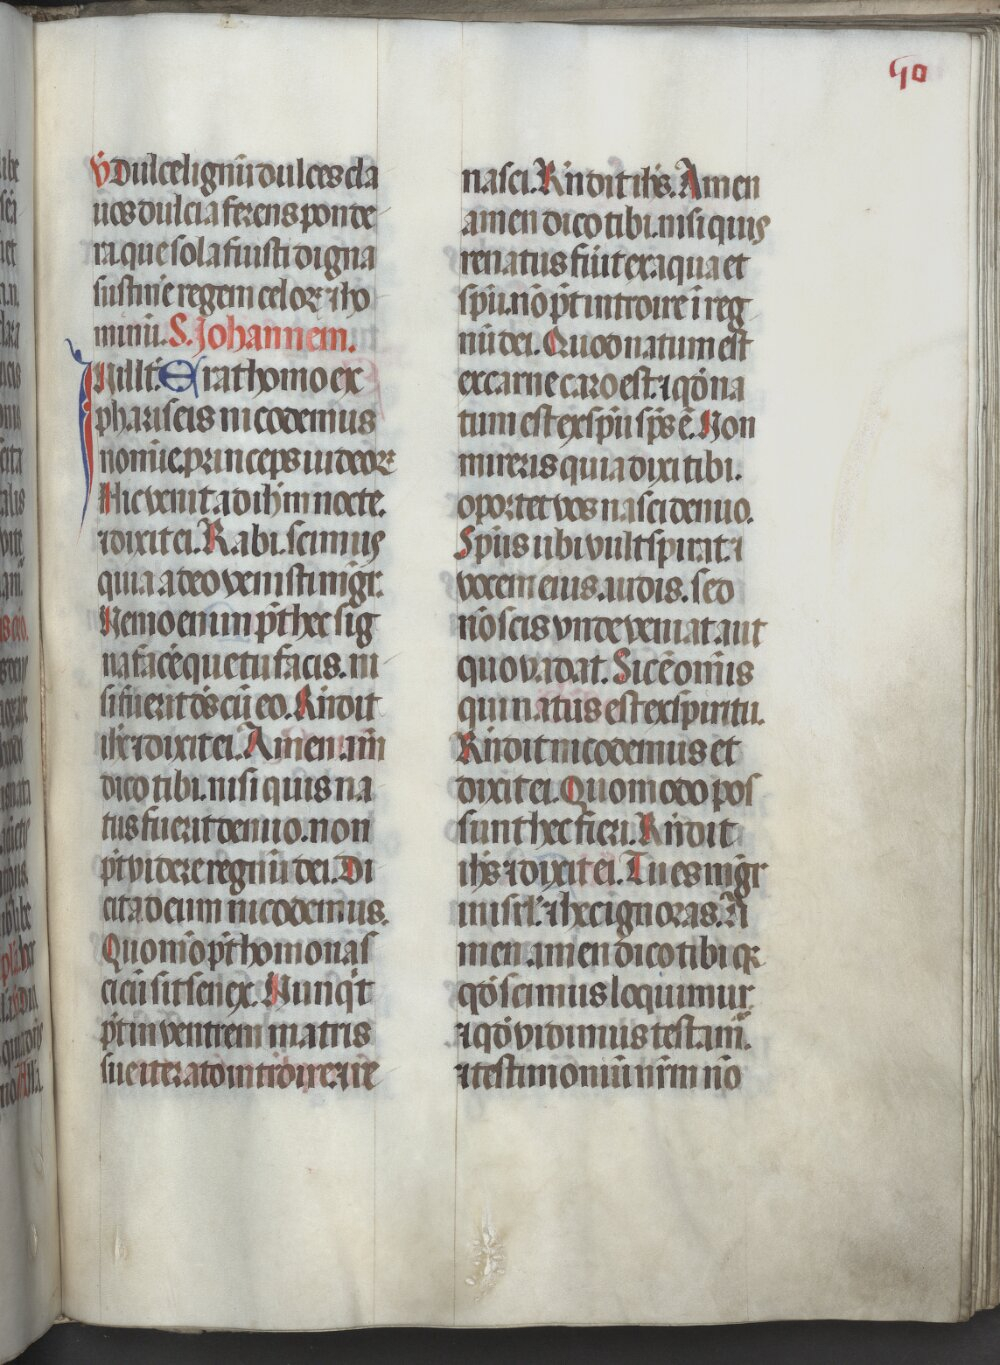 90
V̄ Dulce lignū dulces cla
uos dulcia ferens ponde
ra que sola fuisti digna
sustine regem celoꝝ ⁊ ho
minū. S. Johannem.
In illt̄. Erat homo ex
phariseis nicodemus
nomīe. princeps iudeoꝝ
Hic venit ad ih̄m nocte.
⁊ dixit ei. Rabi. scimus
quia a deo venisti mḡr.
Nemo enim pt̄ hec sig
na facē que tu facis. ni
si fuerit ds̄ cū eo. Rn̄dit
ihc̄ ⁊ dixit ei. Amen. am̄
dico tibi. nisi quis na
tus fuerit denuo. non
pt̄ videre regnū dei. Di
cit ad eum nicodemus.
Quomō pt̄ homo nas
ci cū sit senex. Nunq̄t
pt̄ in ventrem matris
sue iterato introire ⁊ re
nasci. Rn̄dit ih̄s. Amen
amen dico tibi. nisi quis
renatus fūit ex aqua et
spū. nō pt̄ introire ī reg
nū dei. Quod natum est
ex carne caro est. ⁊ qd̄ na
tum est ex spū sp̄s ē. Non
mireris quia dixi tibi.
oportet vos nasci denuo.
Sp̄us ubi vult spirat. ⁊
vocem eius audis. sed
nō scis vnde veniat aut
quo vadat. Sic ē om̄is
qui natus est ex spiritu.
Rn̄dit nicodemus et
dixit ei. Quomodo pos
sunt hec fieri. Rn̄dit
ih̄s ⁊ dixit ei. Tu es mḡr
in isrl̄. ⁊ hec ignoras. A
men. amen dico tibi qꝛ
qd̄ scimus loquimur
⁊ qd̄ vidimus testam̄.
⁊ testimoniū nr̄m nō